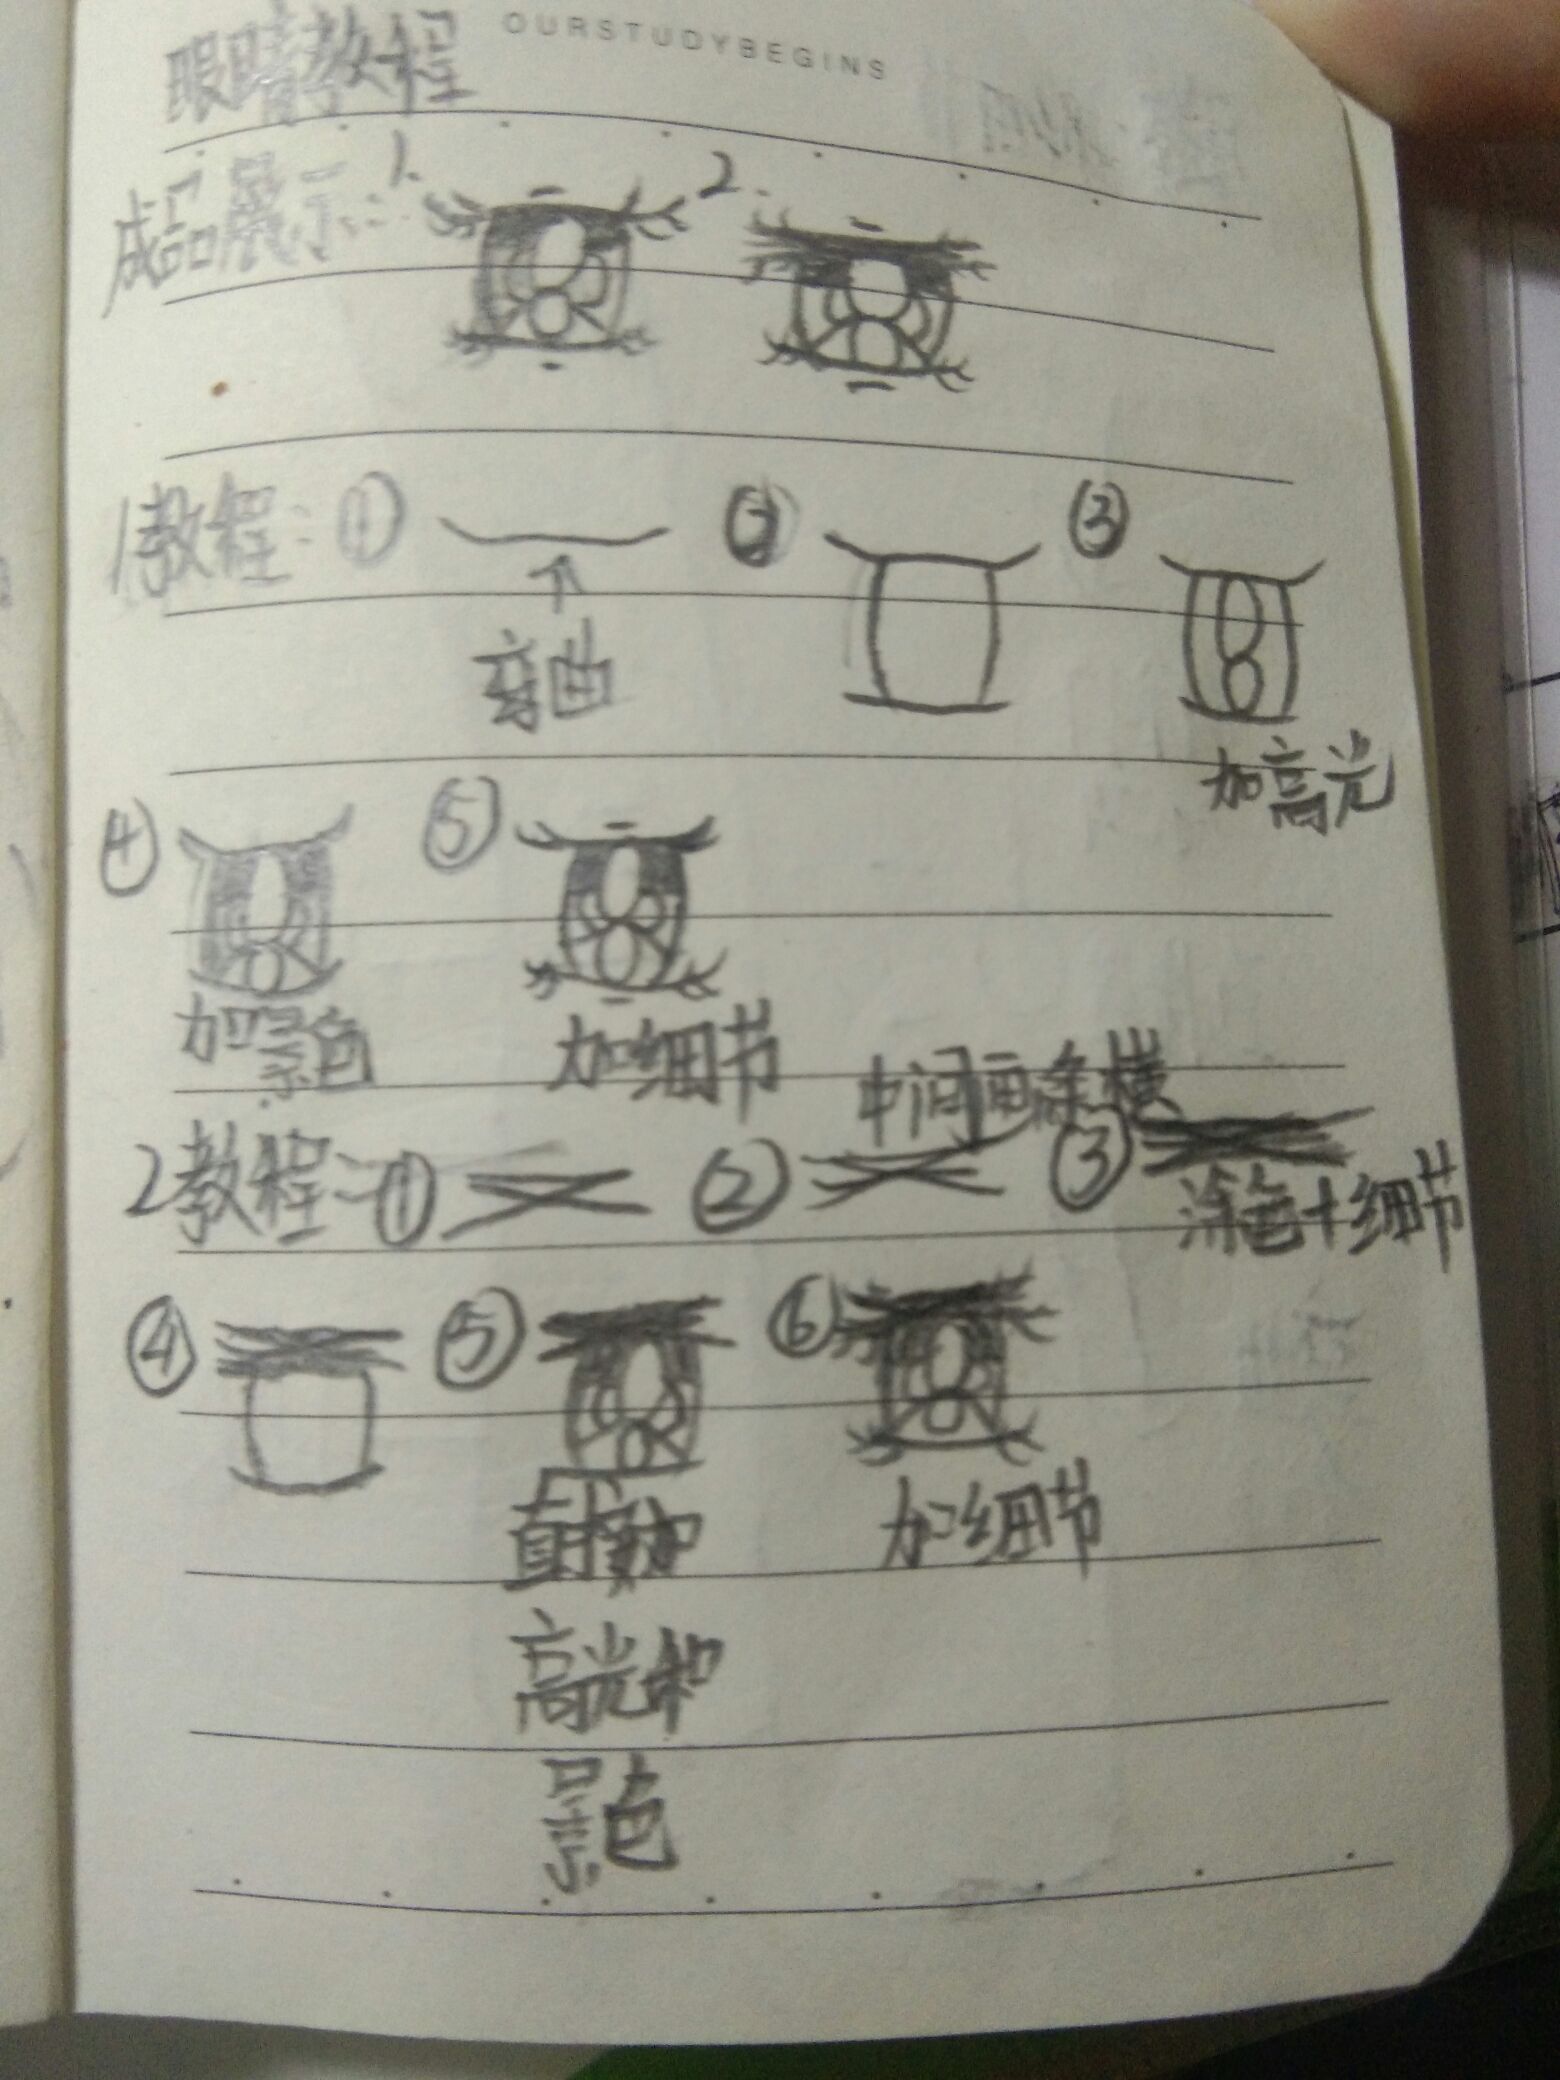 OURSTUDYBEGINS
眼睛教程
成品展示: 1. 2.
1教程: ① ② ③
弯曲
加高光
④ ⑤
加景色 加细节
中间画条横
2教程: ① ② ③
涂色+细节
④ ⑤ ⑥
直接加 加细节
高光和
景色